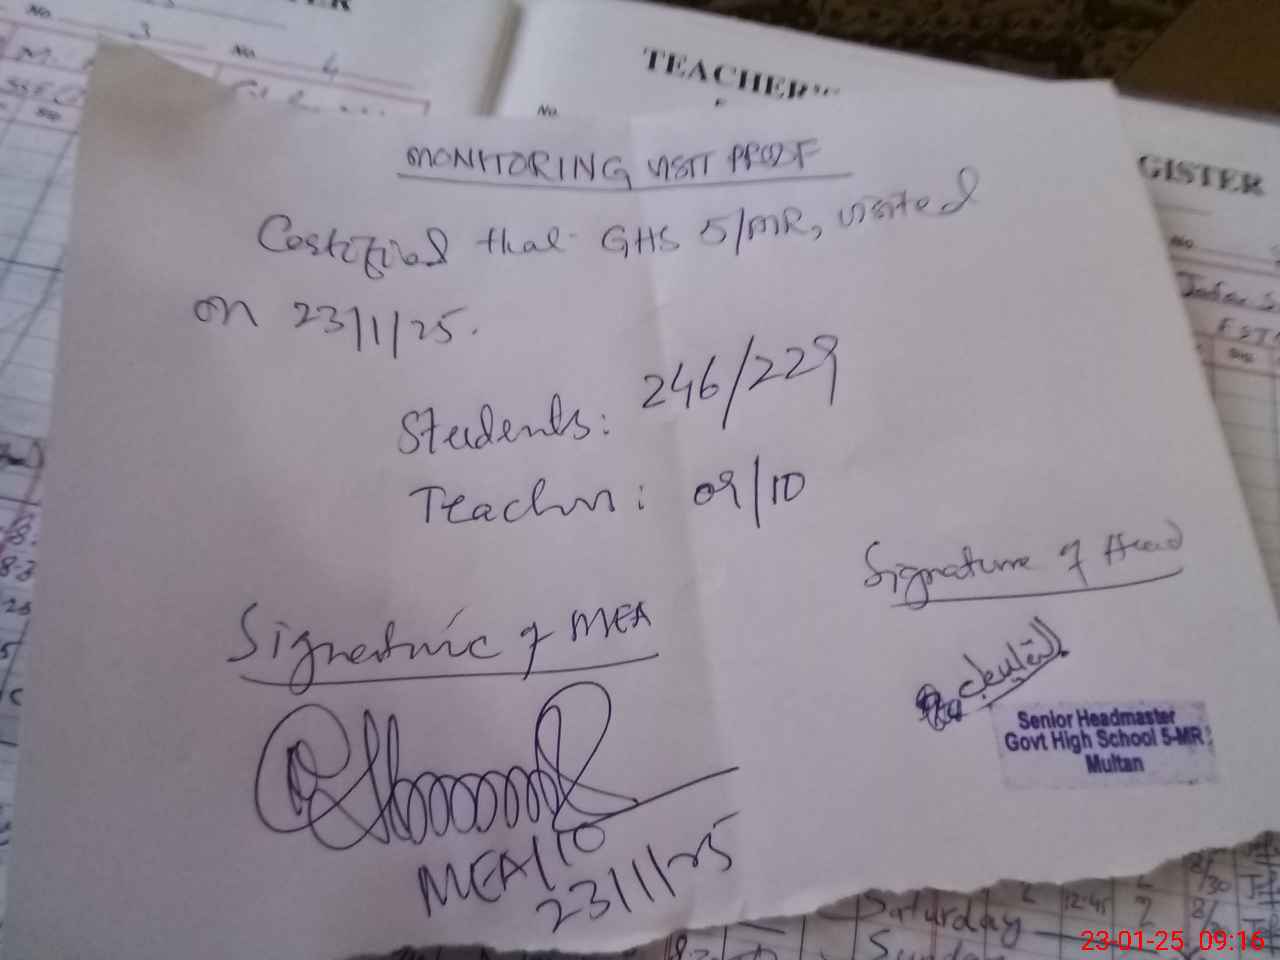 TEACHER'S
GISTER
No. 3
No. 4
No.
No.
MONITORING VISIT PROOF
Certified that GHS 5/MR, visited
on 23/1/25.
Students: 246/229
Teachers: 09/10
Signature of Head
Signature of MEA
Senior Headmaster
Govt High School 5-MR
Multan
MEA/10
23/1/25
Saturday 2 12:45 2 8/
8/30
23-01-25 09:16